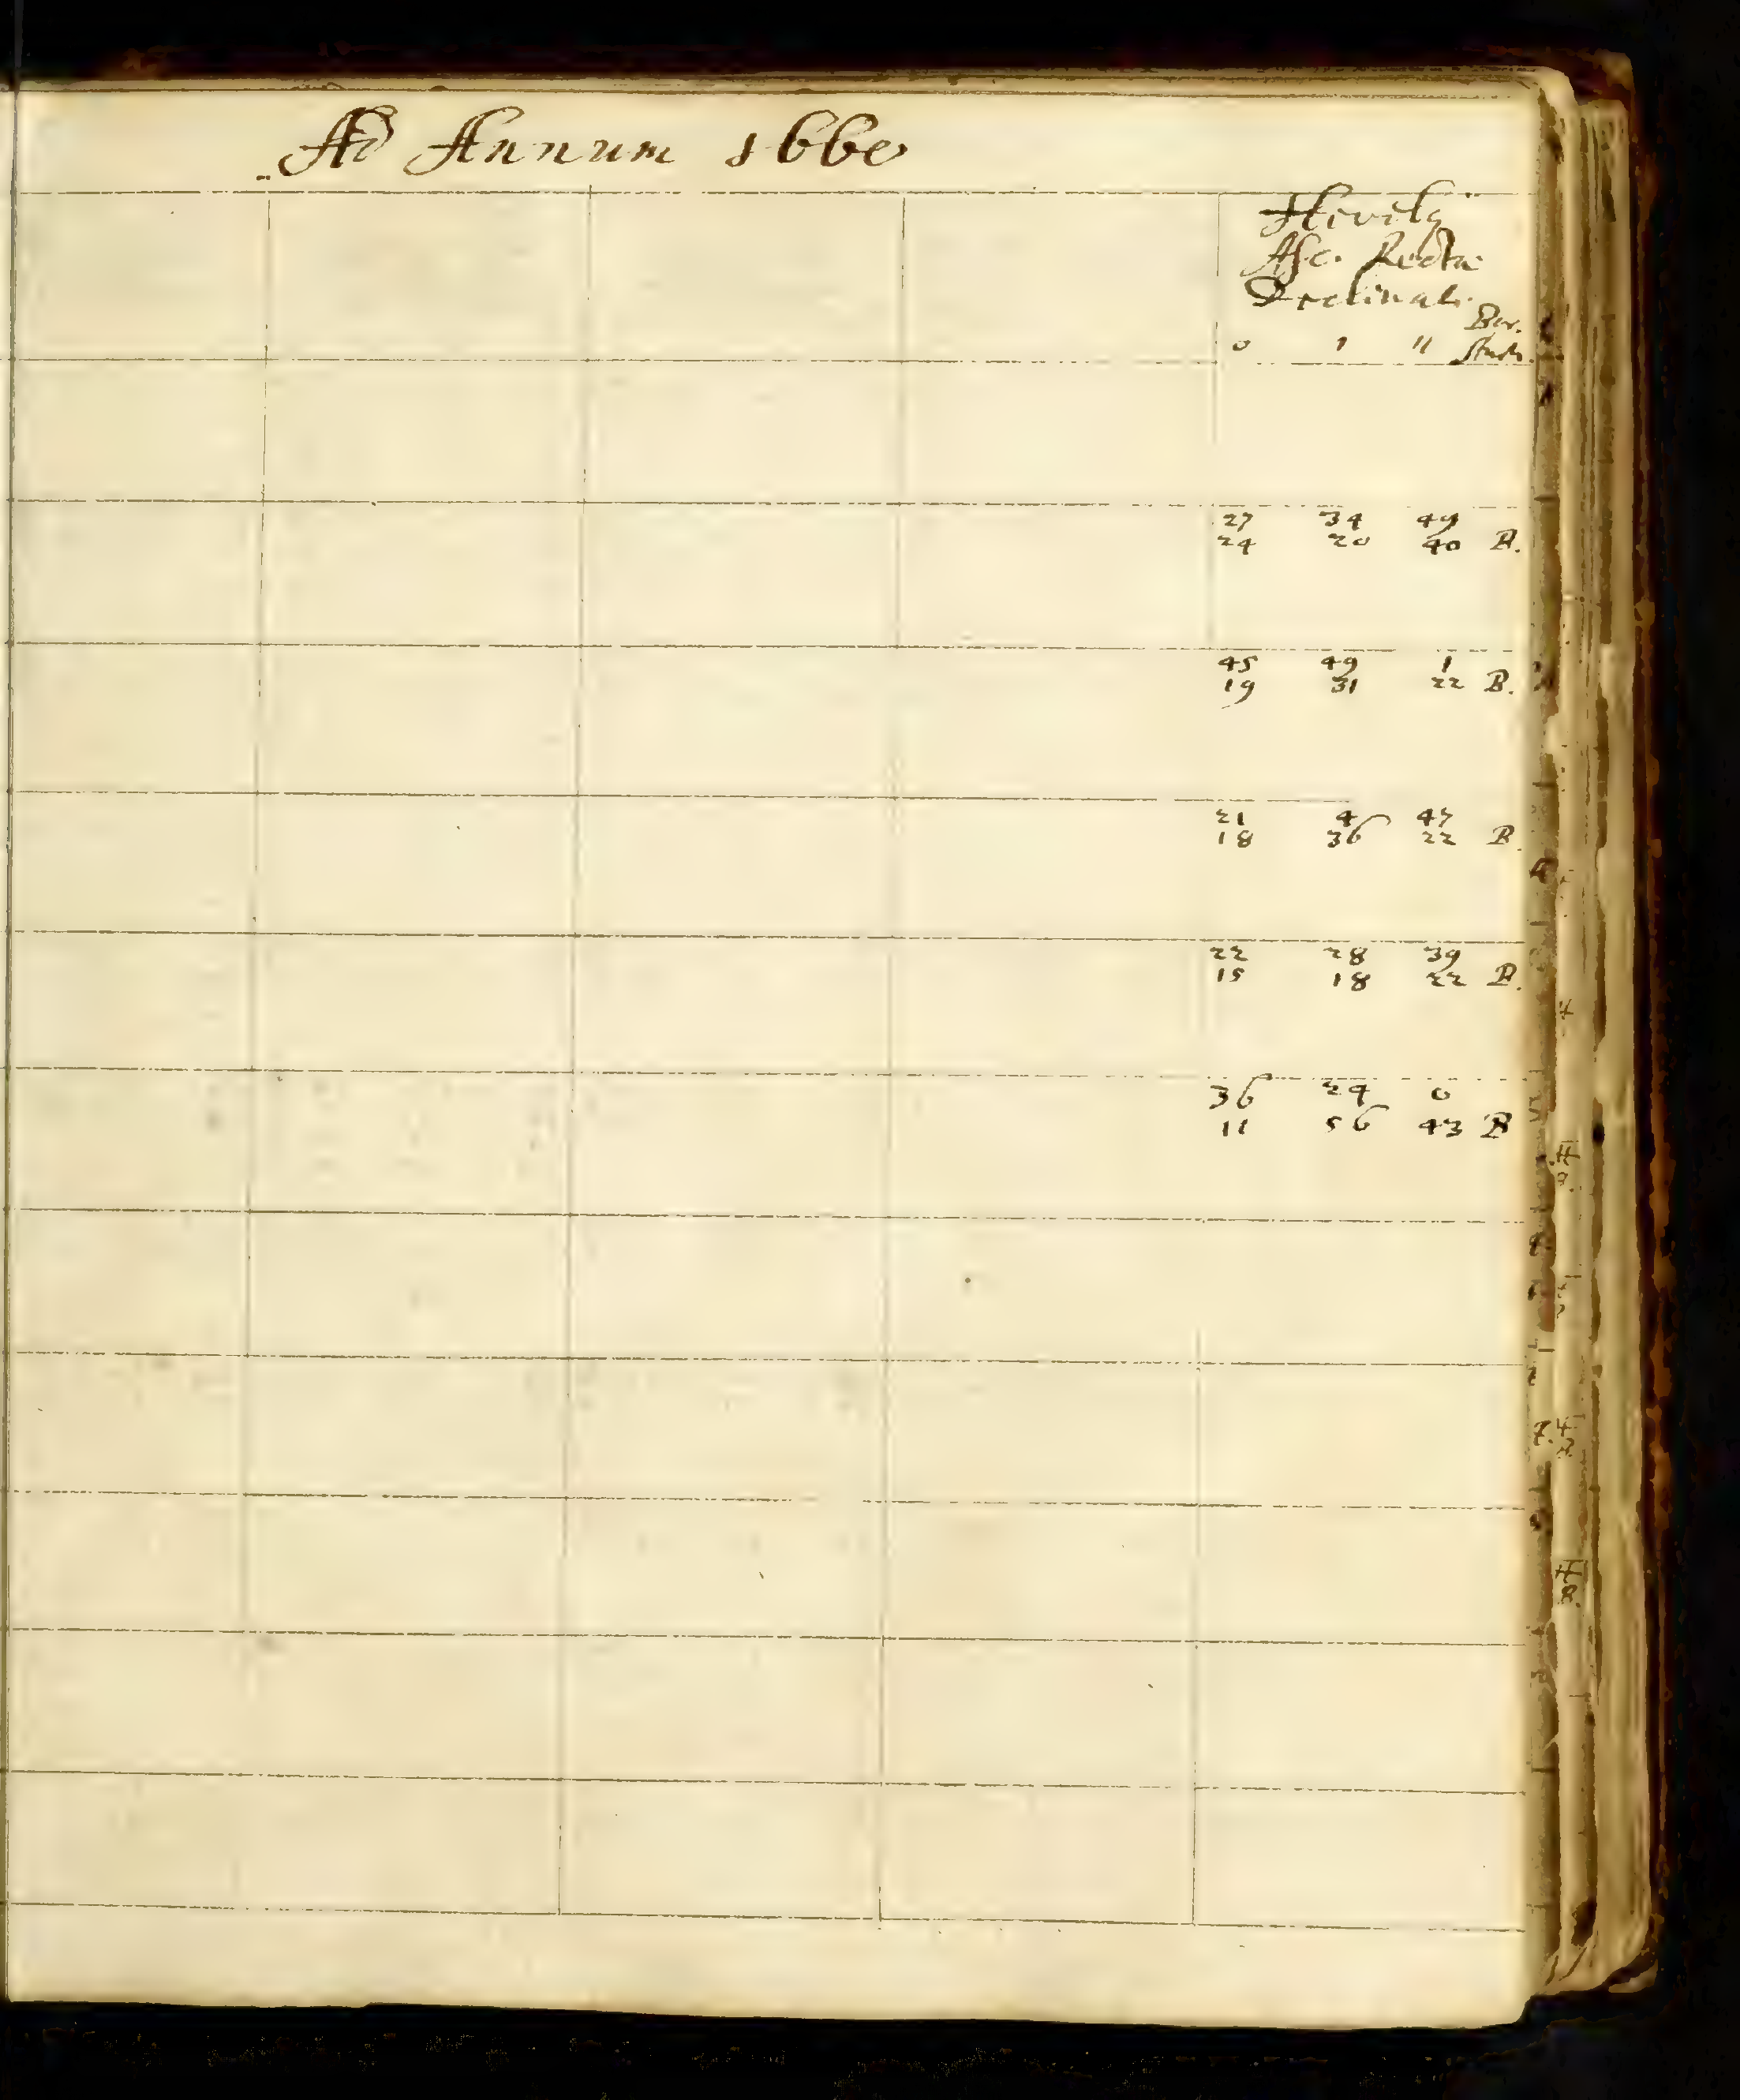 Ad Annum 1660
Hevelij
Asc. Recta
Declinat.
Bor.
° ' " Austr.
27 34 49
24 20 40 B.
45 49 1
19 31 22 B.
21 4 47
18 36 22 B.
22 28 39
15 18 22 B.
36 24 0
11 56 43 B